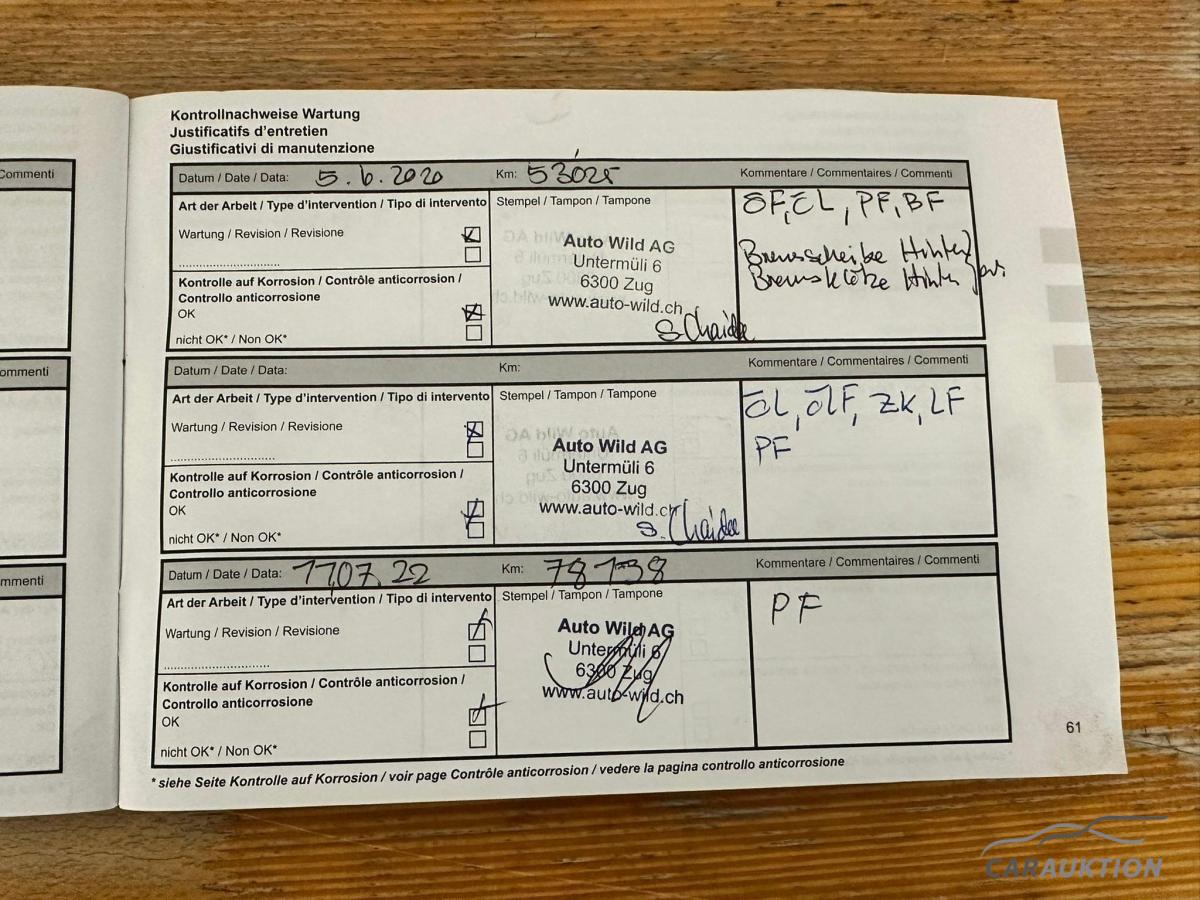 Kontrollnachweise Wartung
Justificatifs d'entretien
Giustificativi di manutenzione
Commenti
Datum / Date / Data: 5.6.2020 Km: 53025 Kommentare / Commentaires / Commenti
Art der Arbeit / Type d'intervention / Tipo di intervento Stempel / Tampon / Tampone
ÖF, ÖL, PF, BF
Wartung / Revision / Revisione
Auto Wild AG
Untermüli 6
6300 Zug
www.auto-wild.ch
Bremsscheibe Hinten
Bremsklötze Hinten
Kontrolle auf Korrosion / Contrôle anticorrosion /
Controllo anticorrosione
OK
nicht OK* / Non OK*
S. Chaidee
ommenti
Datum / Date / Data: Km: Kommentare / Commentaires / Commenti
Art der Arbeit / Type d'intervention / Tipo di intervento Stempel / Tampon / Tampone
ÖL, ÖLF, ZK, LF
PF
Wartung / Revision / Revisione
Auto Wild AG
Untermüli 6
6300 Zug
www.auto-wild.ch
Kontrolle auf Korrosion / Contrôle anticorrosion /
Controllo anticorrosione
OK
nicht OK* / Non OK*
S. Chaidee
mmenti
Datum / Date / Data: 11.07.22 Km: 78138 Kommentare / Commentaires / Commenti
Art der Arbeit / Type d'intervention / Tipo di intervento Stempel / Tampon / Tampone
PF
Wartung / Revision / Revisione
Auto Wild AG
Untermüli 6
6300 Zug
www.auto-wild.ch
Kontrolle auf Korrosion / Contrôle anticorrosion /
Controllo anticorrosione
OK
nicht OK* / Non OK*
61
* siehe Seite Kontrolle auf Korrosion / voir page Contrôle anticorrosion / vedere la pagina controllo anticorrosione
CARAUKTION